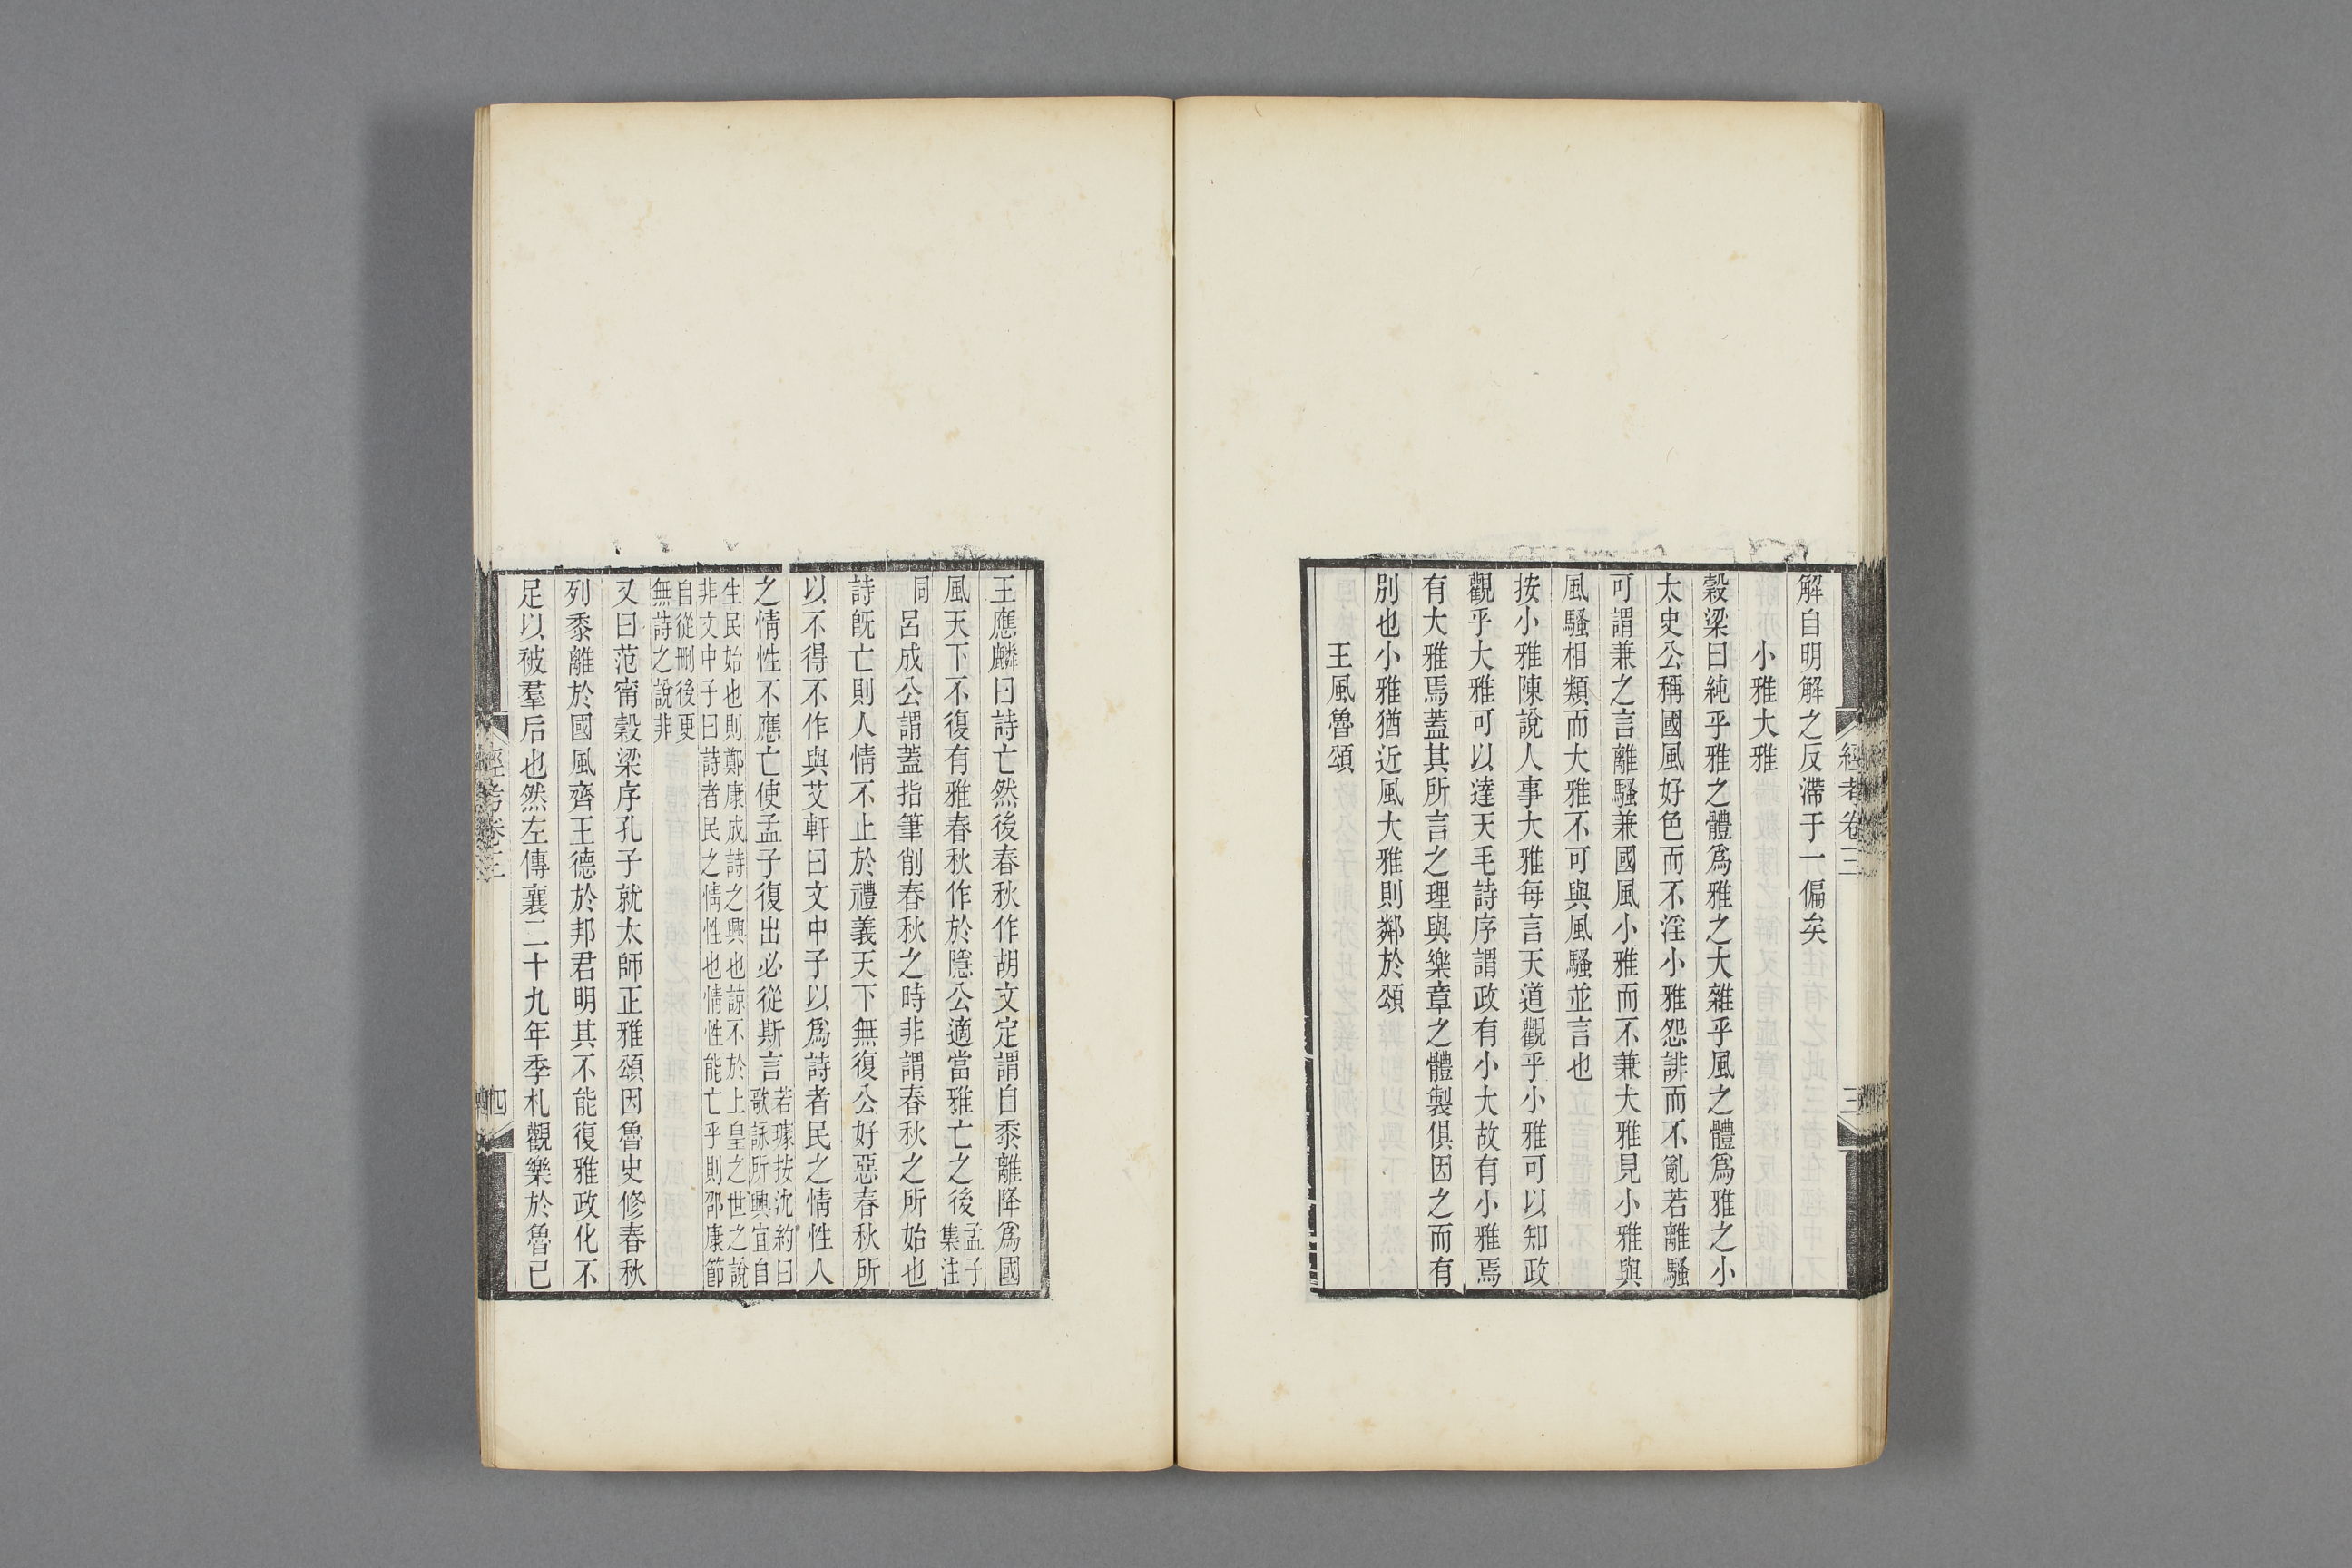 經考卷三
三
解自明解之反滯于一偏矣
小雅大雅
榖梁曰純乎雅之體爲雅之大雜乎風之體爲雅之小
太史公稱國風好色而不淫小雅怨誹而不亂若離騷
可謂兼之言離騷兼國風小雅而不兼大雅見小雅與
風騷相類而大雅不可與風騷並言也
按小雅陳說人事大雅每言天道觀乎小雅可以知政
觀乎大雅可以達天毛詩序謂政有小大故有小雅焉
有大雅焉蓋其所言之理與樂章之體製俱因之而有
別也小雅猶近風大雅則鄰於頌
王風魯頌
王應麟曰詩亡然後春秋作胡文定謂自黍離降爲國
風天下不復有雅春秋作於隱公適當雅亡之後孟子集注
同呂成公謂蓋指筆削春秋之時非謂春秋之所始也
詩旣亡則人情不止於禮義天下無復公好惡春秋所
以不得不作與艾軒曰文中子以爲詩者民之情性人
之情性不應亡使孟子復出必從斯言若璩按沈約曰歌詠所興宜自
生民始也則鄭康成詩之興也諒不於上皇之世之說
非文中子曰詩者民之情性也情性能亡乎則邵康節
自從刪後更
無詩之說非
又曰范甯榖梁序孔子就太師正雅頌因魯史修春秋
列黍離於國風齊王德於邦君明其不能復雅政化不
足以被羣后也然左傳襄二十九年季札觀樂於魯已
經考卷三
四